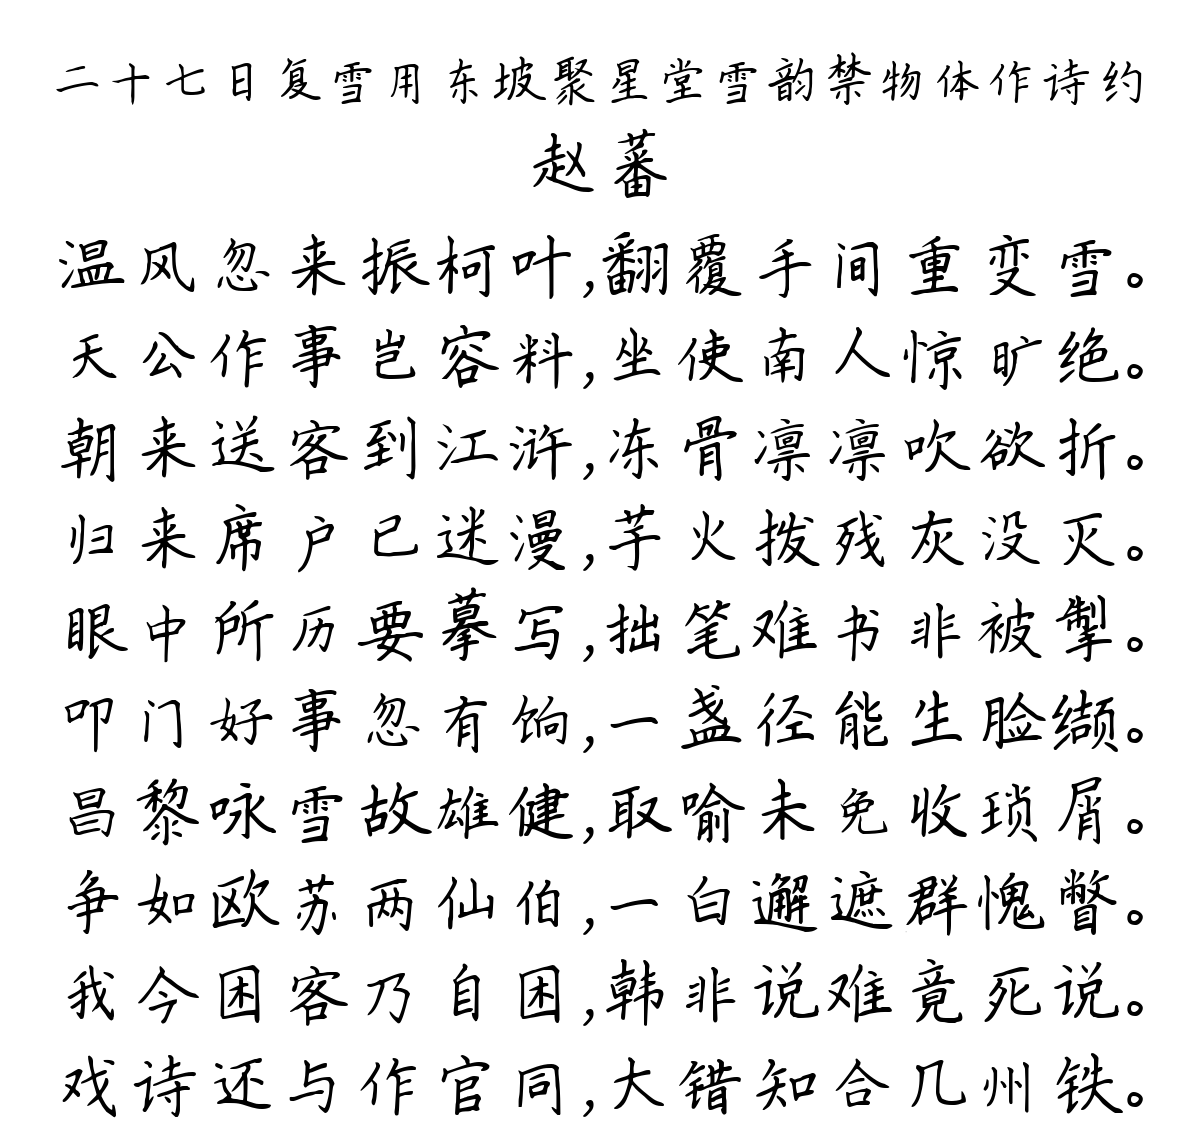 二十七日复雪用东坡聚星堂雪韵禁物体作诗约
赵蕃
温风忽来振柯叶,翻覆手间重变雪。
天公作事岂容料,坐使南人惊旷绝。
朝来送客到江浒,冻骨凛凛吹欲折。
归来席户已迷漫,芋火拨残灰没灭。
眼中所历要摹写,拙笔难书非被掣。
叩门好事忽有饷,一盏径能生脸缬。
昌黎咏雪故雄健,取喻未免收琐屑。
争如欧苏两仙伯,一白邂遮群愧瞥。
我今困客乃自困,韩非说难竟死说。
戏诗还与作官同,大错知合几州铁。